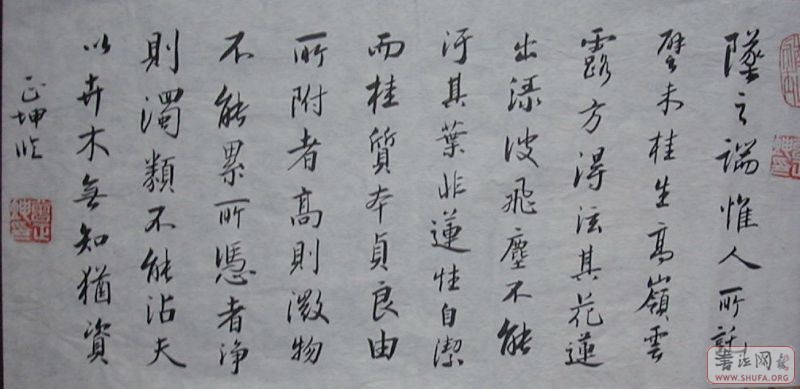 墜之端惟人所託
譬未桂生高嶺雲
露方得泫其花蓮
出渌波飛塵不能
汙其葉非蓮性自潔
而桂質本貞良由
所附者高則微物
不能累所憑者浄
則濁類不能沾夫
以卉木無知猶資
正坤臨
書法网
WWW.SHUFA.ORG